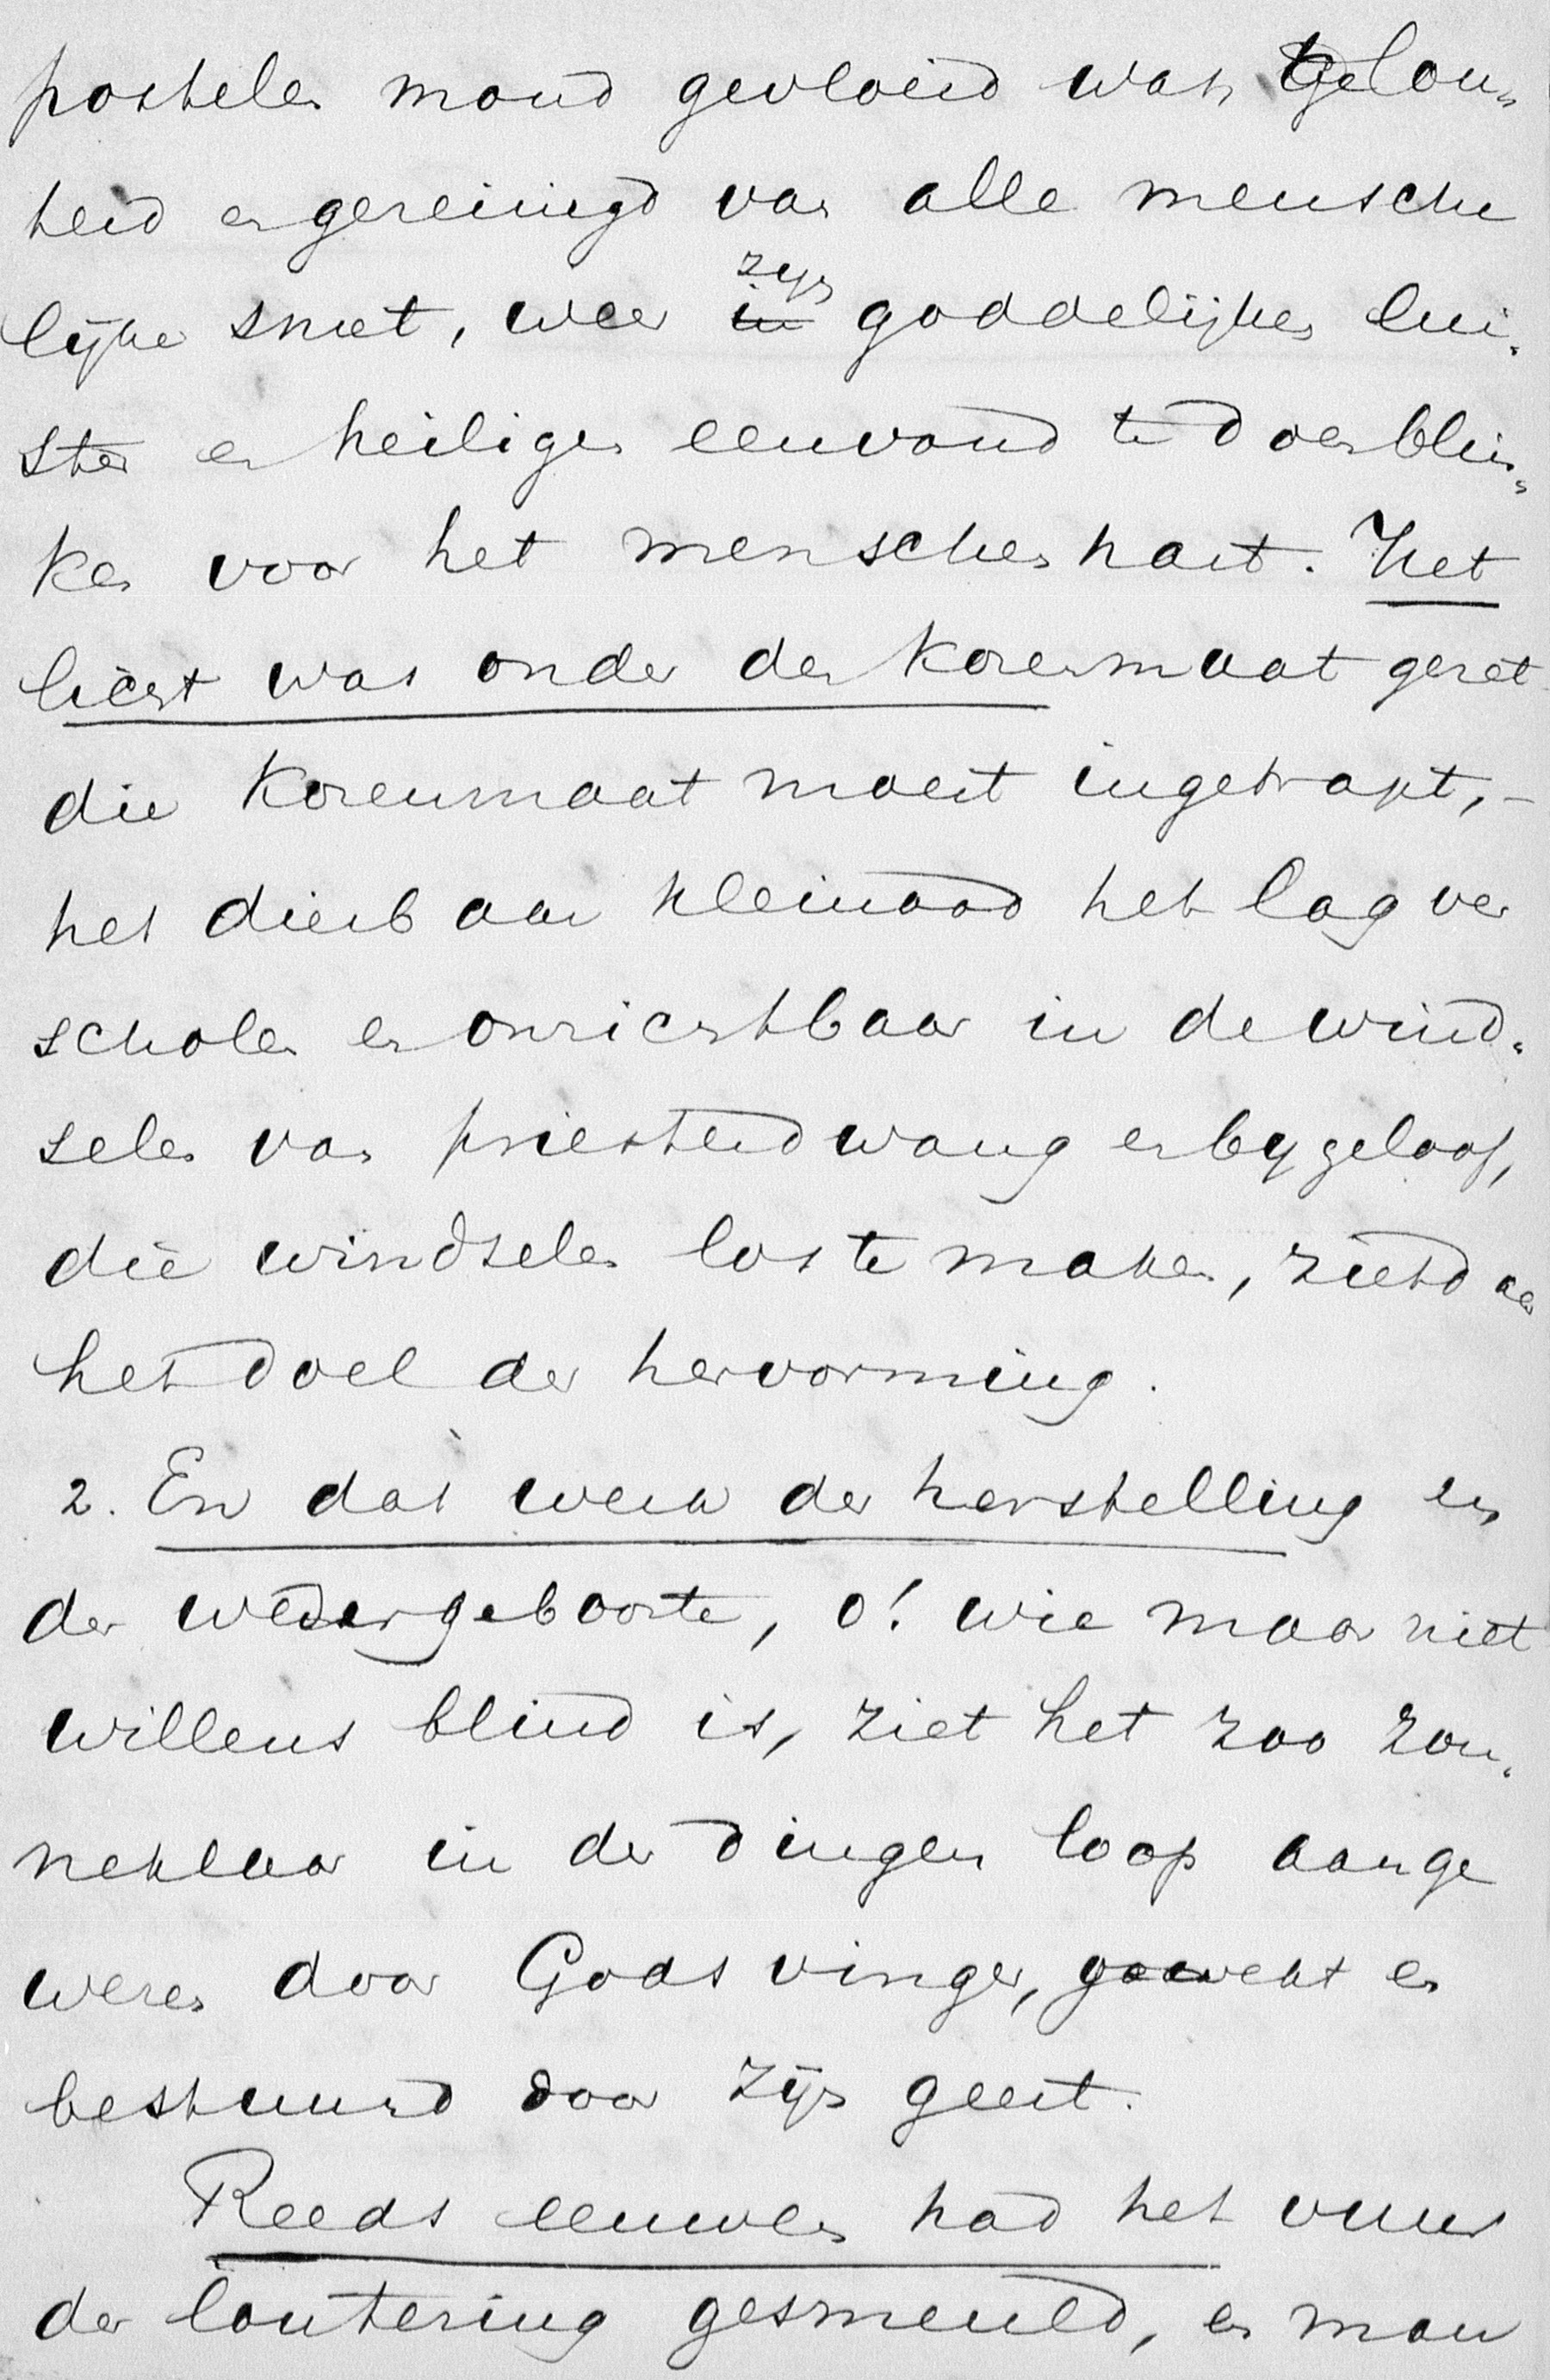 postelen mond gevloeid was, gelou-
terd en gereinigd van alle mensche
lijke smet, weer zijn goddelijken lui-
ster en heiligen eenvoud te doen blin-
ken voor het menschenhart. Het
licht was onder den korenmaat gezet
die korenmaat moest ingetrapt, -
het dierbaar kleinood het lag ver
scholen en onzichtbaar in de wind-
selen van priesterdwang en bijgeloof,
die windselen los te maken, ziet daar
het doel der hervorming.
2. En dat werk der herstelling en
der wedergeboorte, o! wie maar niet
willens blind is, ziet het zoo zon-
neklaar in der dingen loop aange
wezen door Gods vinger, gewekt en
bestuurd door zijn geest.
Reeds eeuwen had het vuur
der loutering gesmeuld, en men